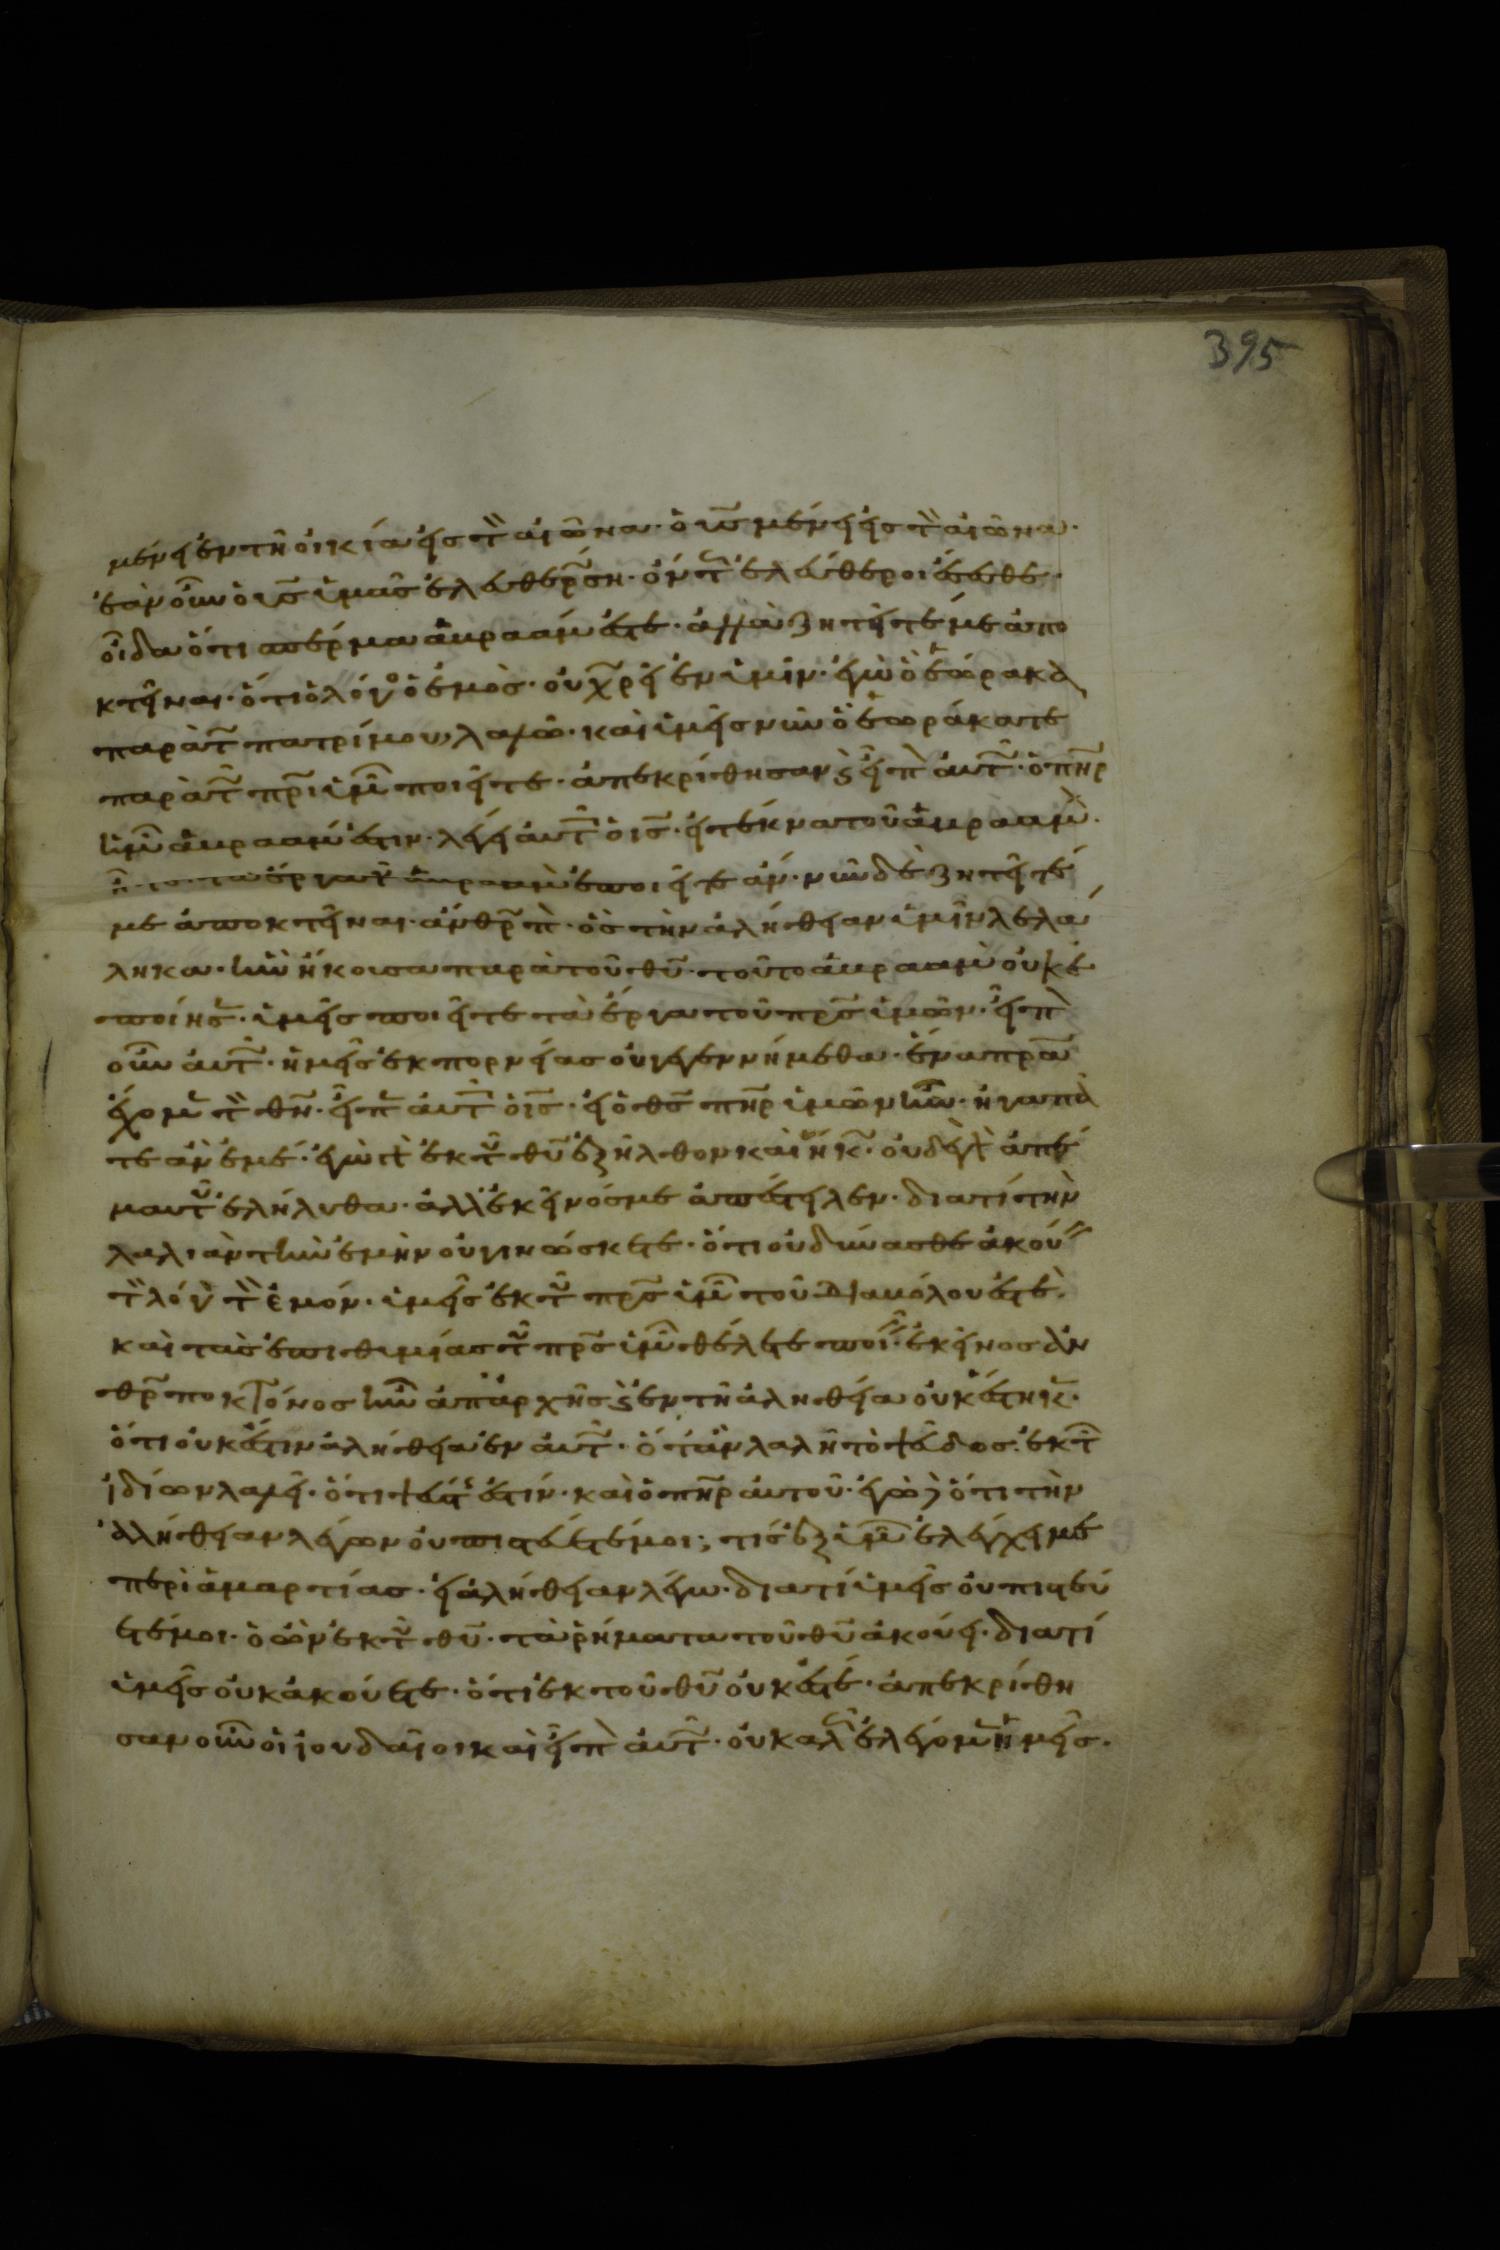 395
μένει ἐν τῆ οἰκία εἰς τὸν αἰῶνα· ὁ υἱὸς μένει εἰς τὸν αἰῶνα·
ἐὰν οὖν ὁ υἱὸς ὑμᾶς ἐλευθερώση· ὄντως ἐλεύθεροι ἔσεσθε·
οἶδα ὅτι σπέρμα ἀβραάμ ἐστε· ἀλλὰ ζητεῖτέ με ἀπο
κτεῖναι· ὅτι ὁ λόγος ὁ ἐμὸς· οὐ χωρεῖ ἐν ὑμῖν· ἐγὼ ὃ ἑώρακα
παρὰ τῶ πατρί μου, λαλῶ· καὶ ὑμεῖς οὖν ὃ ἑωράκατε
παρὰ τῶ πρὶ ὑμῶν ποιεῖτε· ἀπεκρίθησαν καὶ εἶπον αὐτῶ· ὁ πηρ
ἡμῶν ἀβραάμ ἐστιν· λέγει αὐτοῖς ὁ ις· εἰ τέκνα τοῦ ἀβραὰμ
ἦτε τὰ ἔργα τοῦ ἀβραὰμ ἐποιεῖτε ἄν· νῦν δὲ ζητεῖτέ
με ἀποκτεῖναι· ἄνθρωπον· ὃς τὴν ἀλήθειαν ὑμῖν λελά
ληκα· ἣν ἤκουσα παρὰ τοῦ θυ· τοῦτο ἀβραὰμ οὐκ ἐ
ποίησεν· ὑμεῖς ποιεῖτε τὰ ἔργα τοῦ πρς ὑμῶν· εἶπον
οὖν αὐτῶ· ἡμεῖς ἐκ πορνείας οὐ γεγεννήμεθα· ἕνα πρα
ἔχομεν τὸν θν· εἶπεν αὐτοῖς ὁ ις· εἰ ὁ θς πηρ ὑμῶν ἦν· ἠγαπᾶ
τε ἂν ἐμέ· ἐγὼ γὰρ ἐκ τοῦ θυ ἐξῆλθον καὶ ἥκω· οὐδὲ γὰρ ἀπ' ἐ
μαυτοῦ ἐλήλυθα· ἀλλ' ἐκεῖνός με ἀπέστειλεν· διατί τὴν
λαλιὰν τὴν ἐμὴν οὐ γινώσκετε· ὅτι οὐ δύνασθε ἀκούειν
τὸν λόγον τὸν ἐμόν· ὑμεῖς ἐκ τοῦ πρς ὑμῶν τοῦ διαβόλου ἐστὲ·
καὶ τὰς ἐπιθυμίας τοῦ πρς ὑμῶν θέλετε ποιεῖν· ἐκεῖνος ἀν
θρωποκτόνος ἦν ἀπ' ἀρχῆς καὶ ἐν τῆ ἀληθεία οὐκ ἕστηκεν·
ὅτι οὐκ ἔστιν ἀλήθεια ἐν αὐτῶ· ὅταν λαλῆ τὸ ψεῦδος· ἐκ τῶν
ἰδίων λαλεῖ· ὅτι ψεύστης ἐστίν· καὶ ὁ πηρ αὐτοῦ· ἐγὼ δὲ ὅτι τὴν
ἀλήθειαν λέγων οὐ πιστεύετέ μοι; τίς ἐξ ὑμῶν ἐλέγχει με
περὶ ἁμαρτίας· εἰ ἀλήθειαν λέγω· διατί ὑμεῖς οὐ πιστεύ
ετέ μοι· ὁ ὢν ἐκ τοῦ θυ· τὰ ῥήματα τοῦ θυ ἀκούει· διατί
ὑμεῖς οὐκ ἀκούετε· ὅτι ἐκ τοῦ θυ οὐκ ἐστέ· ἀπεκρίθη
σαν οὖν οἱ ἰουδαῖοι καὶ εἶπον αὐτῶ· οὐ καλῶς ἐλέγομεν ἡμεῖς·